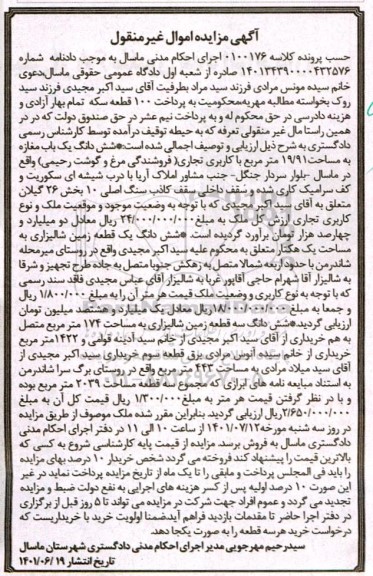 آگهی مزایده اموال غیر منقول
حسب پرونده کلاسه ۰۱۰۰۱۷۶ اجرای احکام مدنی ماسال به موجب دادنامه شماره
۱۴۰۱۳۴۳۹۰۰۰۰۴۳۲۵۷۶ صادره از شعبه اول دادگاه عمومی حقوقی ماسال،دعوی
خانم سیده مونس مرادی فرزند سید مراد بطرفیت آقای سید اکبر مجیدی فرزند سید
روک بخواسته مطالبه مهریه،محکومیت به پرداخت ۱۰۰ قطعه سکه تمام بهار آزادی و
هزینه دادرسی در حق محکوم له و به پرداخت نیم عشر در حق صندوق دولت که در در
همین راستا مال غیر منقولی تعرفه که به حیطه توقیف درآمده توسط کارشناس رسمی
دادگستری به شرح ذیل ارزیابی و توصیف اجمالی شده است:*شش دانگ یک باب مغازه
به مساحت۱۹/۹۱ متر مربع با کاربری تجاری( فروشندگی مرغ و گوشت رحیمی) واقع
در ماسال -بلوار سردار جنگل- جنب مشاور املاک آریا با درب شیشه ای سکوریت و
کف سرامیک کاری شده و سقف داخلی سقف کاذب سنگ اصلی ۱۰ بخش ۲۶ گیلان
متعلق به آقای سید اکبر مجیدی که با توجه به وضعیت موجود و موقعیت ملک و نوع
کاربری تجاری ارزش کل ملک به مبلغ۲۴/۰۰۰/۰۰۰/۰۰۰ ریال معادل دو میلیارد و
چهارصد هزار تومان برآورد گردیده است .*شش دانگ یک قطعه زمین شالیزاری به
مساحت یک هکتار متعلق به محکوم علیه سید اکبر مجیدی واقع در روستای میرمحله
شاندرمن با حدود اربعه شمالا متصل به زهکش جنوبا متصل به جاده طرح تجهیز و شرقا
به شالیزار آقا شهرام حاجی آقاپور غربا به شالیزار آقای عباس مجیدی فاقد سند رسمی
که با توجه به نوع کاربری و وضعیت ملک قیمت هر متر آن را به مبلغ ۱/۸۰۰/۰۰۰ ریال
و جمعا به مبلغ ریال معادل یک میلیارد و هشتصد میلیون تومان
ارزیابی گردید.*شش دانگ سه قطعه زمین شالیزاری به مساحت ۱۷۴ متر مربع متصل
به هم خریداری از آقای سید اکبر مجیدی از خانم سید آدینه قوامی و ۱۴۲۲متر مربع
خریداری از خانم سیده آنوس مرادی برق قطعه سوم خریداری سید اکبر مجیدی از
آقای سید میلاد مرادی به مساحت ۴۴۳ متر مربع واقع در روستای برگ سرا شاندرمن
به استناد مبایعه نامه های ابرازی که مجموع سه قطعه مساحت ۲۰۳۹ متر مربع بوده
و با در نظر گرفتن قیمت هر متر به مبلغ۱/۳۰۰/۰۰۰ ریال قیمت کل آن به مبلغ
۲/۶۵۰/۰۰۰/۰۰۰ریال ارزیابی گردید. بنابراین مقرر شده ملک موصوف از طریق مزایده
در روز سه شنبه مورخه۱۴۰۱/۰۷/۱۲ از ساعت ۱۰ الی ۱۱ در دفتر اجرای احکام مدنی
دادگستری ماسال به فروش برسد. مزایده از قیمت پایه کارشناسی شروع به کسی که
بالاترین قیمت را پیشنهاد کند فروخته می گردد شخص خریدار ۱۰ درصد بهای مزایده
را باید فی المجلس پرداخت و مابقی را تا یک ماه از تاریخ مزایده پرداخت نماید در غیر
این صورت ۱۰ درصد اولیه پس از کسر هزینه های اجرایی به نفع دولت ضبط و مزایده
تجدید می گردد و عموم افراد جهت شرکت در مزایده می تواند تا ۵ روز قبل از برگزاری
در دفتر اجرا حاضر تا مقدمات بازدید فراهم آید.ضمنا اولویت خرید با خریداریست که
درخواست خرید هرسه قطعه را به صورت یکجا دهد.
سید رحیم مهرجویی مدیر اجرای احکام مدنی دادگستری شهرستان ماسال
تاریخ انتشار ۱۴۰۱/۰۶/۱۹